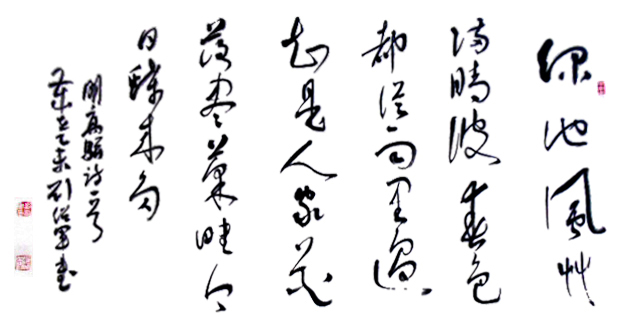 绿池風艸
满晴波春色
都從雨里過
知是人家花
落尽菜畦今
日蝶来多
明高启诗一首
岁在乙未刘军书